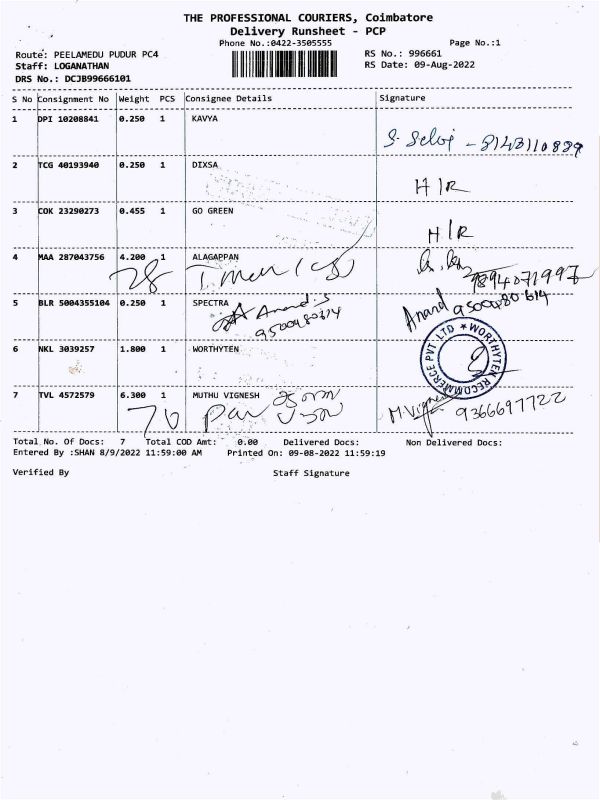 THE PROFESSIONAL COURIERS, Coimbatore
Delivery Runsheet - PCP
Phone No.:0422-3505555 Page No.:1
Route: PEELAMEDU PUDUR PC4 RS No.: 996661
Staff: LOGANATHAN RS Date: 09-Aug-2022
DRS No.: DCJB99666101
S No Consignment No Weight PCS Consignee Details Signature
1 DPI 10208841 0.250 1 KAVYA
S. Selvi - 8143110889
2 TCG 40193940 0.250 1 DIXSA
H/R
3 COK 23290273 0.455 1 GO GREEN
H/R
4 MAA 287043756 4.200 1 ALAGAPPAN
28 9894071997
5 BLR 5004355104 0.250 1 SPECTRA Anand 9500480614
Anand.S
9500480614
6 NKL 3039257 1.800 1 WORTHYTEN
WORTHYTEN RECOMMERCE PVT LTD
7 TVL 4572579 6.300 1 MUTHU VIGNESH
70 M.Vignesh 9366697722
Total No. Of Docs: 7 Total COD Amt: 0.00 Delivered Docs: Non Delivered Docs:
Entered By :SHAN 8/9/2022 11:59:00 AM Printed On: 09-08-2022 11:59:19
Verified By Staff Signature